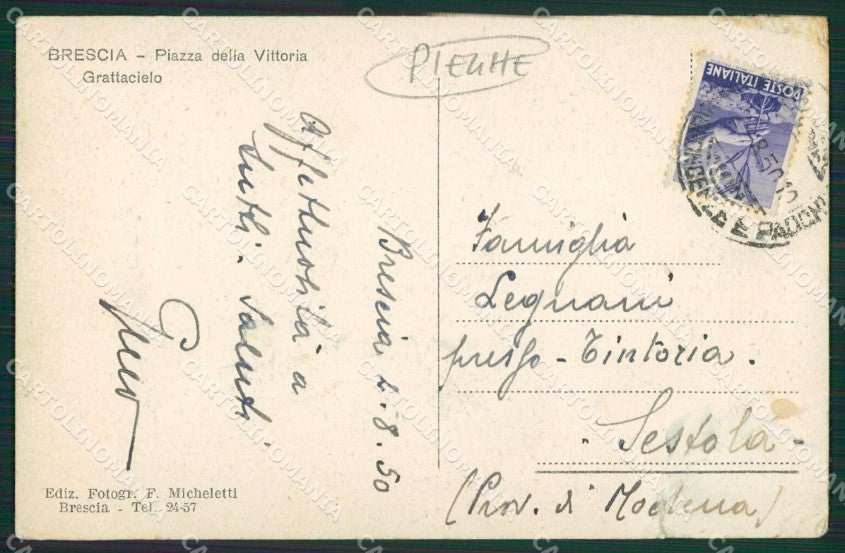 BRESCIA - Piazza della Vittoria
Grattacielo
PIEGHE
POSTE ITALIANE
Affettuosità a
tutti. Saluti
Brescia 2.8.50
Famiglia
Legnani
presso - Tintoria.
- Sestola -
(Prov. di Modena)
Ediz. Fotogr. F. Micheletti
Brescia - Tel. 24-57
CARTOLINOMANIA